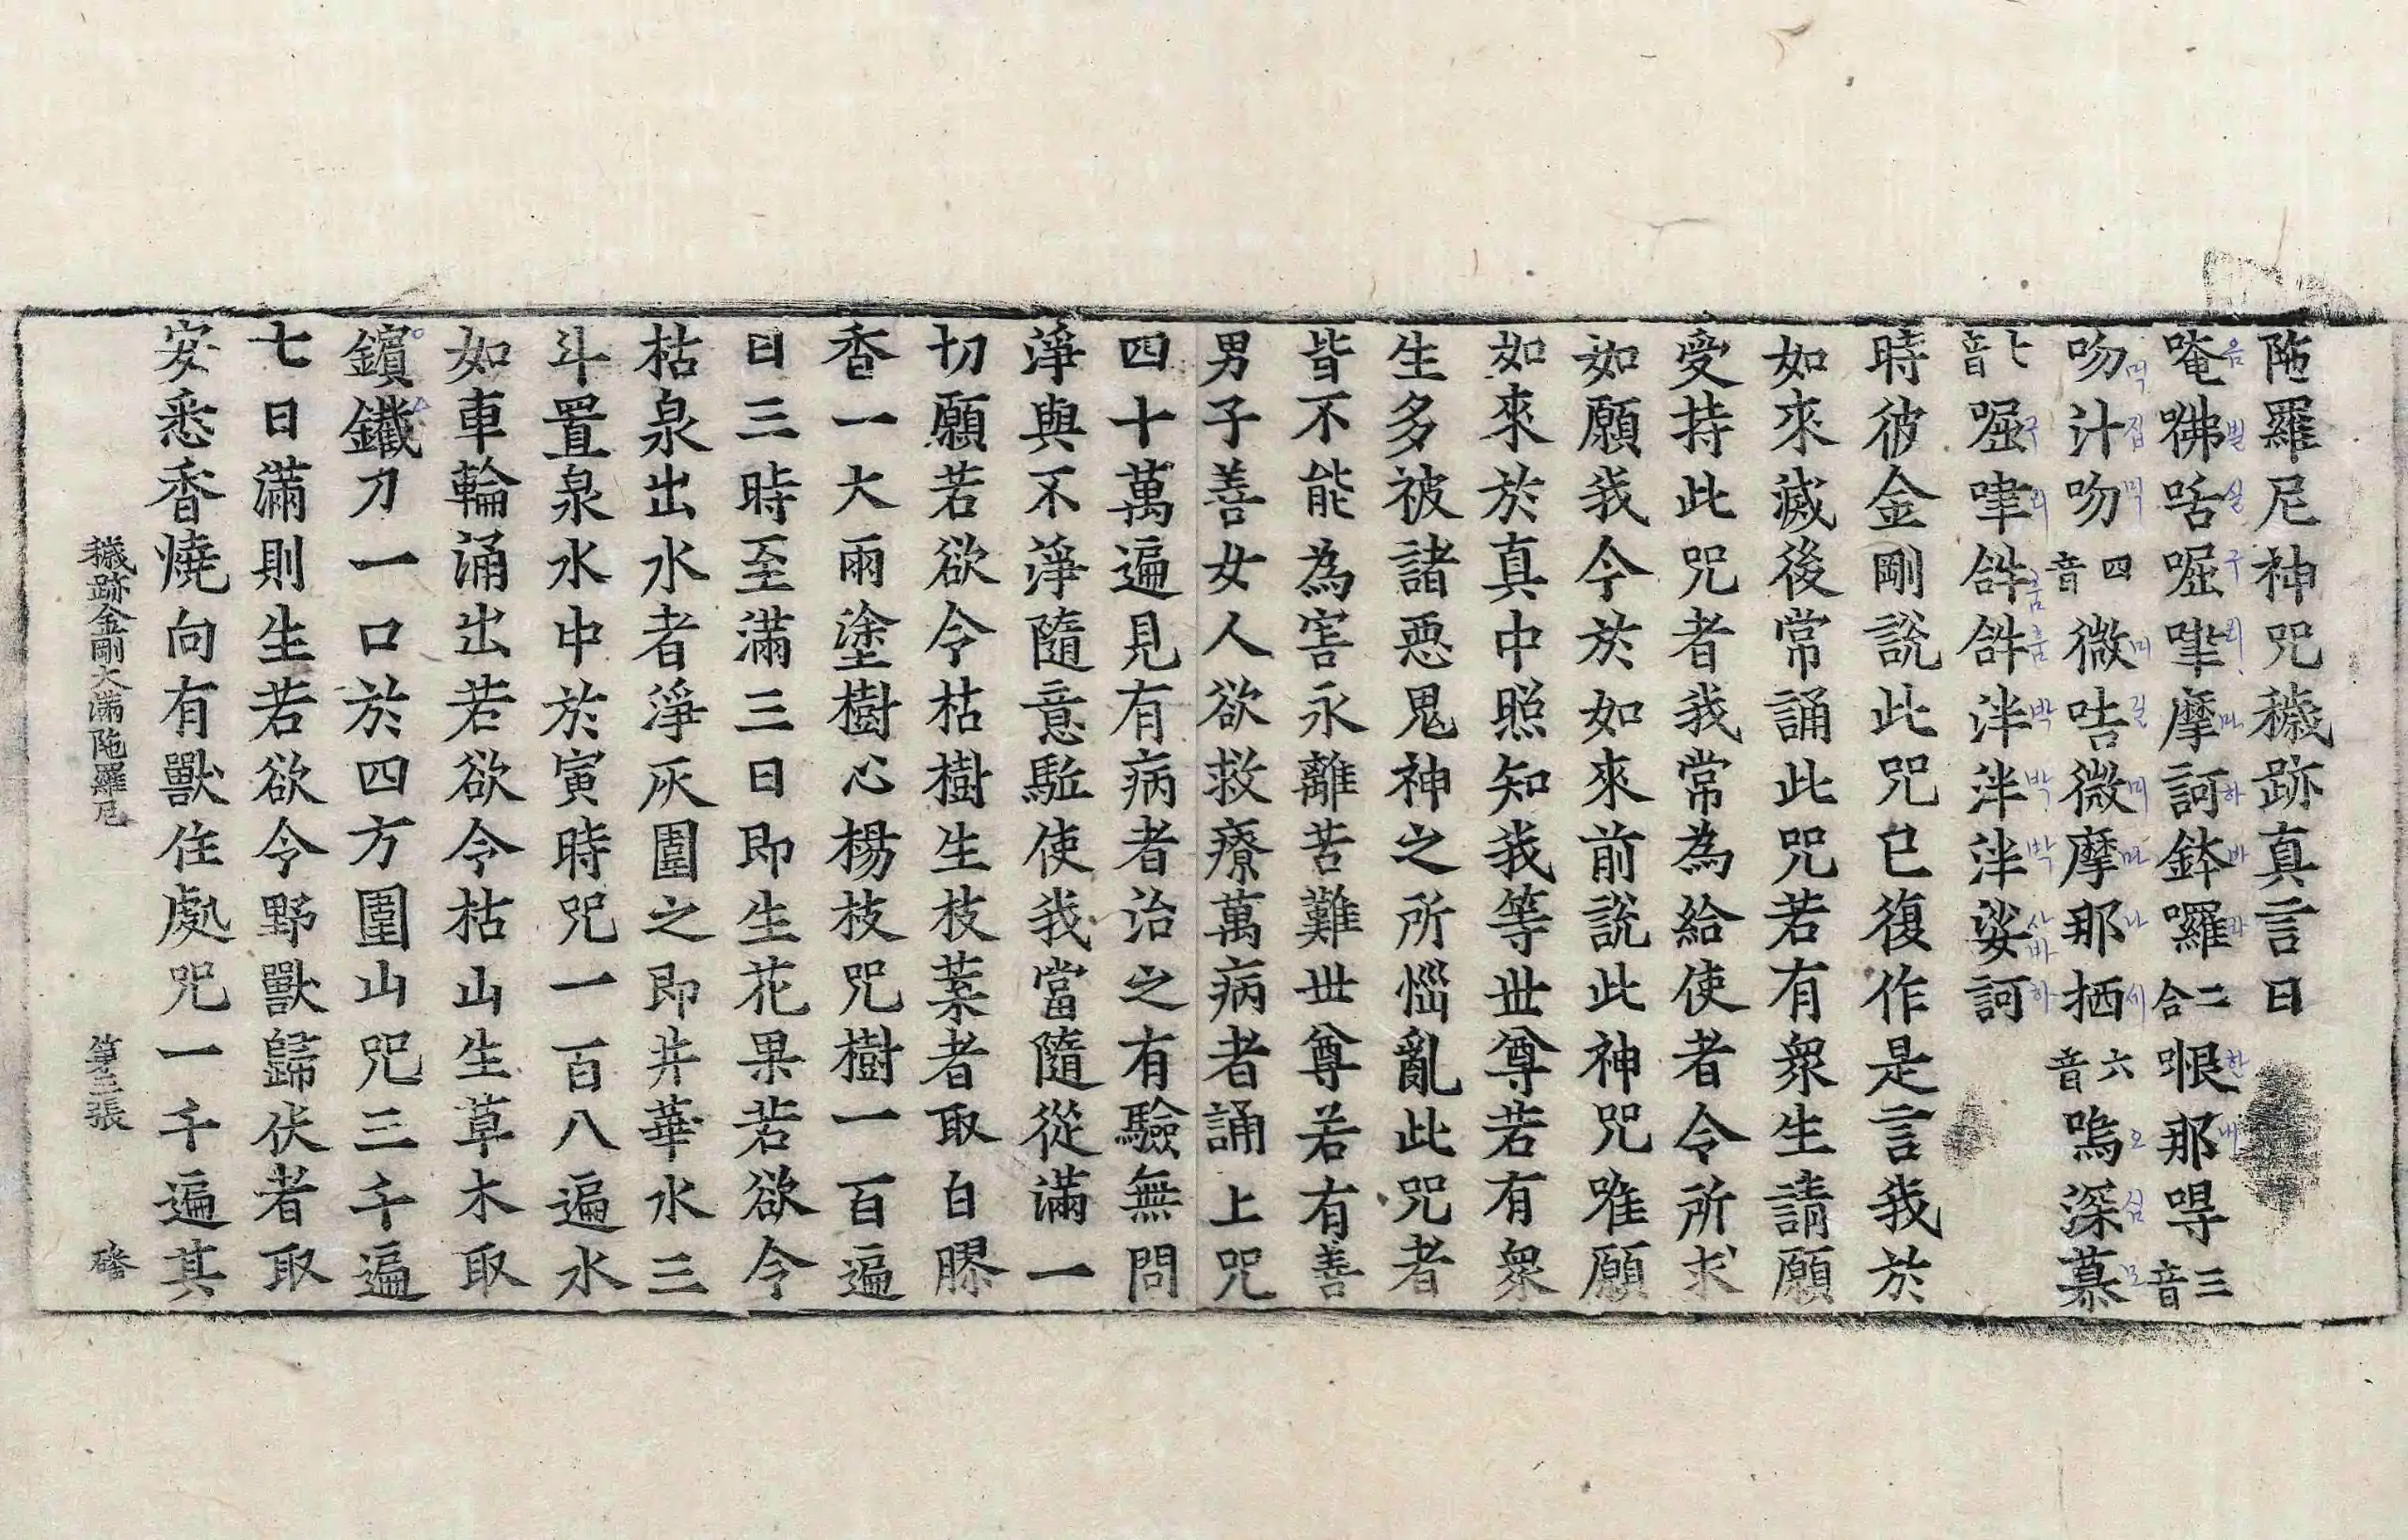 陁羅尼神咒穢跡真言曰
唵𠵨咶啒㖀摩訶鉢囉二合㫰那㖶音三
吻汁吻四音微咭微摩那栖六音嗚深慕
七音啒㖀𤙖𤙖泮泮泮娑訶
時彼金剛說此咒已復作是言我於
如來滅後常誦此咒若有衆生請願
受持此咒者我常為給使者令所求
如願我今於如來前說此神咒唯願
如來於真中照知我等世尊若有衆
生多被諸惡鬼神之所惱亂此咒者
皆不能為害永離苦難世尊若有善
男子善女人欲救療萬病者誦上咒
四十萬遍見有病者治之有驗無問
淨與不淨隨意駈使我當隨從滿一
切願若欲令枯樹生枝葉者取白膠
香一大兩塗樹心楊枝咒樹一百遍
日三時至滿三日即生花果若欲令
枯泉出水者淨灰圍之即井華水三
斗置泉水中於寅時咒一百八遍水
如車輪涌出若欲令枯山生草木取
鑌鐵刀一口於四方圍山咒三千遍
七日滿則生若欲令野獸歸伏者取
安悉香燒向有獸住處咒一千遍其
穢跡金剛大滿陁羅尼　第三張